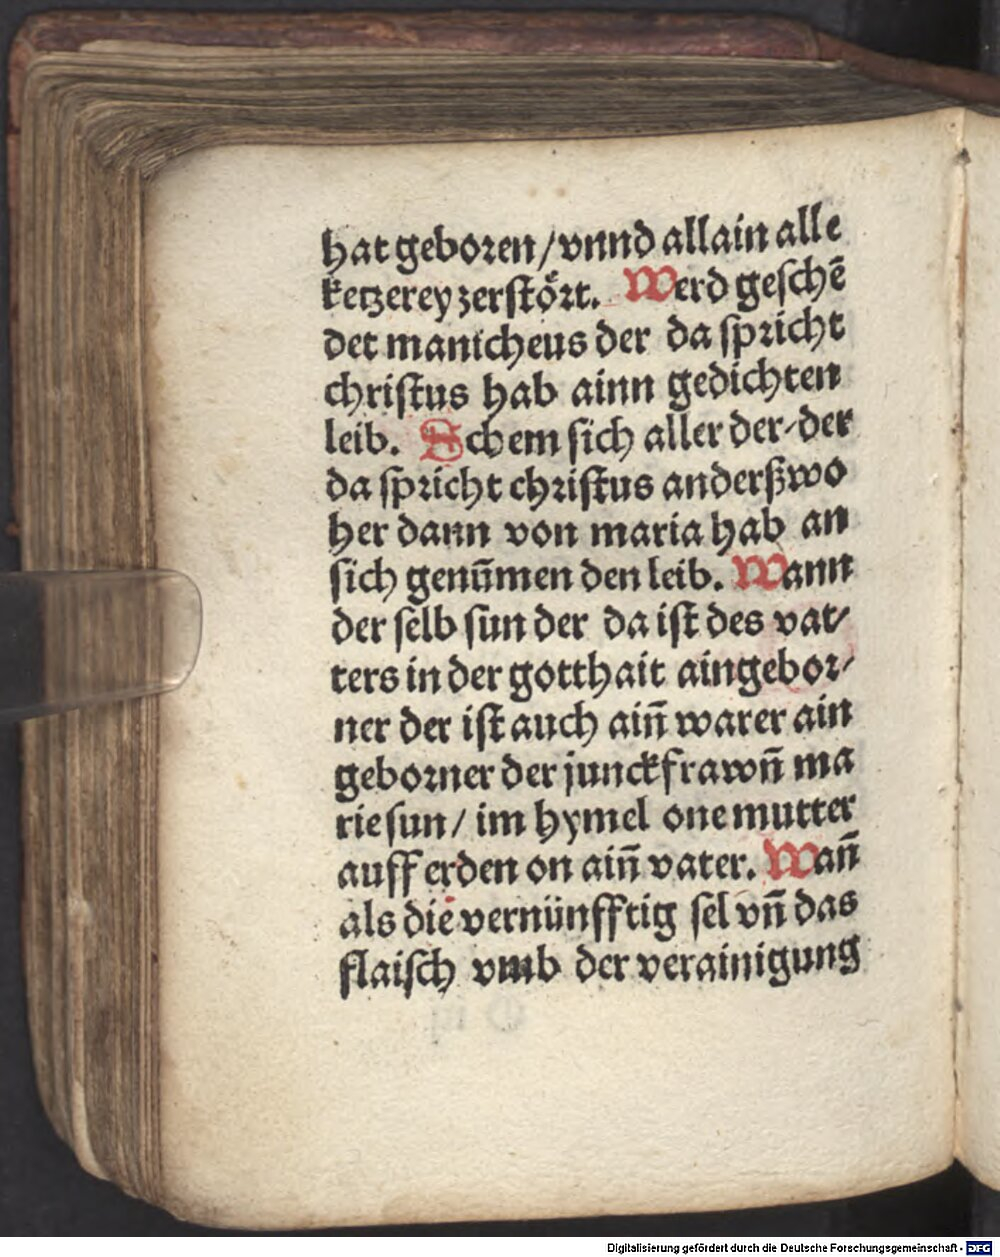 hat geboren / vnnd allain alle
ketzerey zerstoͤrt. Werd geschē
det manicheus der da spricht
christus hab ainn gedichten
leib. Schem sich aller der-der
da spricht christus anderßwo
her dann von maria hab an
sich genūmen den leib. Wann
der selb sun der da ist des vat/
ters in der gotthait aingebor/
ner der ist auch ain̄ warer ain
geborner der junckfrawn̄ ma
rie sun / im hymel one mutter
auff erden on ain̄ vater. Wan̄
als die vernünfftig sel vn̄ das
flaisch vmb der verainigung
Digitalisierung gefördert durch die Deutsche Forschungsgemeinschaft - DFG